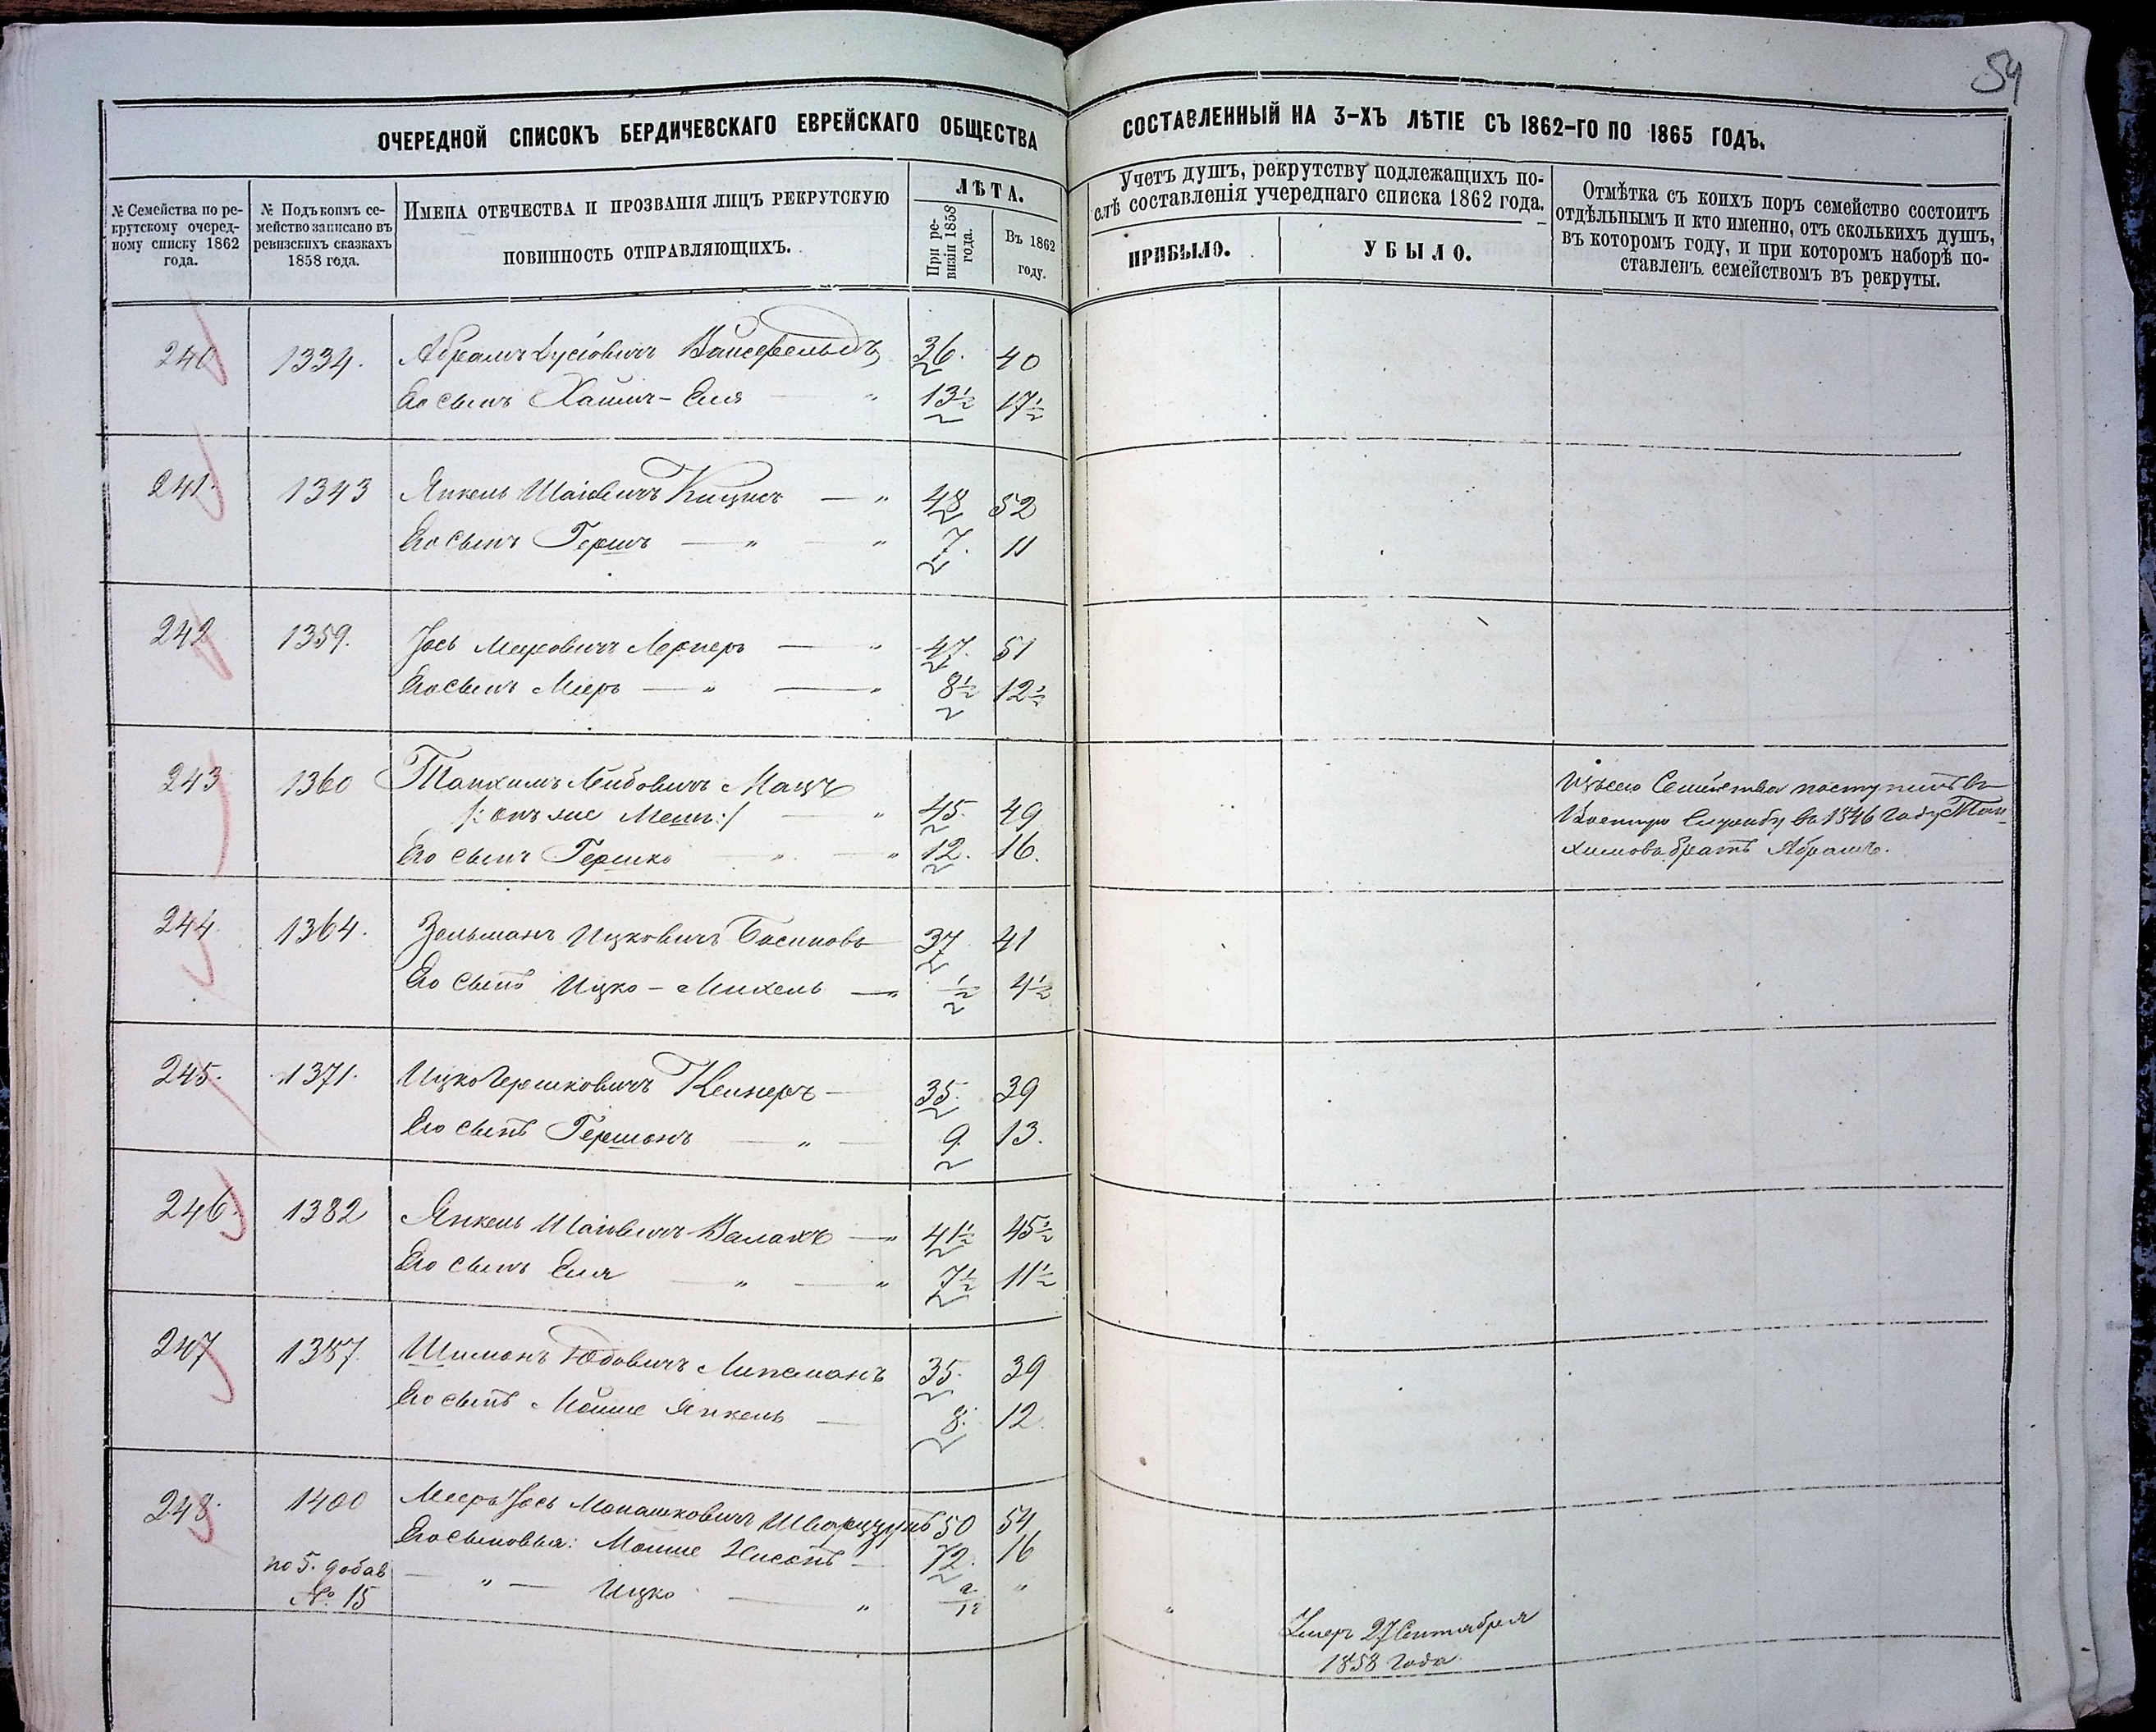 54
ОЧЕРЕДНОЙ СПИСОКЪ БЕРДИЧЕВСКАГО ЕВРЕЙСКАГО ОБЩЕСТВА СОСТАВЛЕННЫЙ НА 3-ХЪ ЛѢТІЕ СЪ 1862-ГО ПО 1865 ГОДЪ.
№ Семейства по рекрутскому очередному списку 1862 года.
№ Подъ коимъ семейство записано въ ревизскихъ сказкахъ 1858 года.
ИМЕНА ОТЕЧЕСТВА И ПРОЗВАНІЯ ЛИЦЪ РЕКРУТСКУЮ
ПОВИННОСТЬ ОТПРАВЛЯЮЩИХЪ.
ЛѢТА.
При ревизіи 1858 года.
Въ 1862 году.
Учетъ душъ, рекрутству подлежащихъ по-
слѣ составленія учереднаго списка 1862 года.
ПРИБЫЛО.
УБЫЛО.
Отмѣтка съ коихъ поръ семейство состоитъ
отдѣльнымъ и кто именно, отъ сколькихъ душъ,
въ которомъ году, и при которомъ наборѣ по-
ставленъ семействомъ въ рекруты.
240 1334. Абрамъ Вайсфельдъ 36. 40
Его сынъ Хаимъ-Еля " 13½ 17½
241 1343 Янкель Шаіовичъ Кицисъ — " 48 52
Его сынъ Гершъ — " — " 7. 11
242 1359. Іось Лернеръ — " 47. 51
Его сынъ Меръ — " — " 8½ 12½
243 1360 Танхимъ Лейбовичъ Мацъ
/: онъ же :/ — " 45. 49
Его сынъ Гершко " — " 12. 16.
Изъ сего Семейства поступилъ въ
Военную Службу въ 1846 Году Тан-
химовъ братъ Абрамъ.
244 1364. Зельманъ Ицковичъ Босиновъ 37 41
Его сынъ Ицко-Михель — " ½ 4½
245. 1371. Ицко Гершковичъ Келнеръ — 35. 39
Его сынъ Гершонъ — " — 9. 13.
246. 1382 Янкель Шаіовичъ Валахъ — " 41½ 45½
Его сынъ Еля — " — " 7½ 11½
247 1387. Шимонъ Юдовичъ Липсманъ 35. 39
Его сынъ Мошие Янкель — 8. 12.
248. 1400 Мееръ Іось Монашковичъ 50 54
Его сыновья: Мошие Нисонъ — 12. 16
по 5. добав — " — Ицко — " 2/12 "
№ 15
" Умеръ 27 Сентября
1858 года